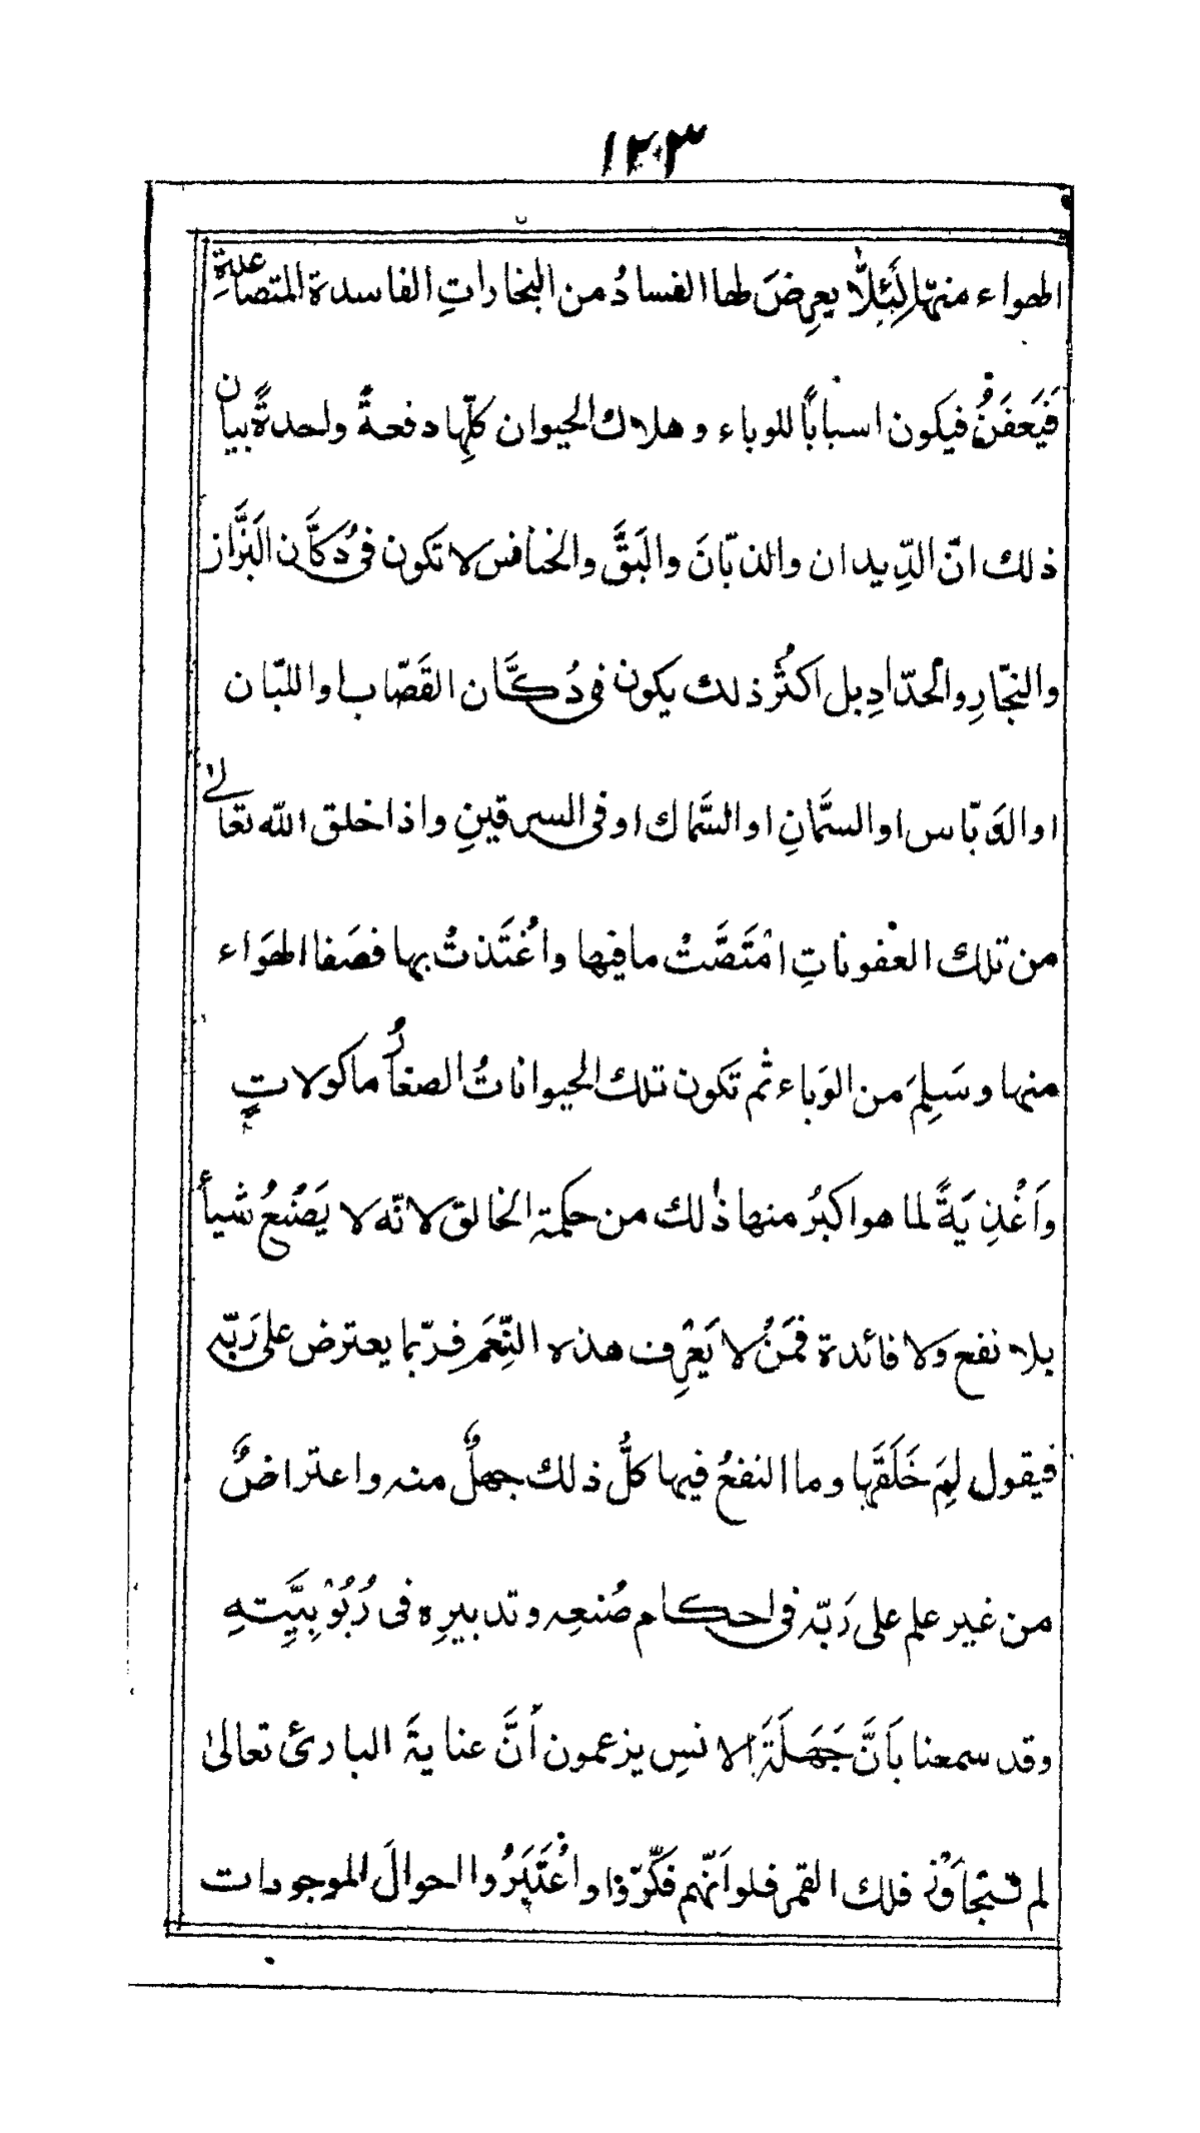 ١٢٣
الهواء منها لِئَلّا يعرِضَ لها الفسادُ من البخاراتِ الفاسدة المتصاعدةِ
فَيَعفَنُ فيكون اسباباً للوباء و هلاك الحيوان كلِّها دفعةً واحدةً بيان
ذلك انّ الدِّيدان والذبّانَ والبَقَّ والخنافس لا تكون فى دُكَّان البَزَّاز
والنجّارِ والحدّادِ بل اكثرُ ذلك يكون فى دُكَّان القَصّاب او اللبّان
او الدَبّاس او السمَّانِ او السَّماك او فى السرقينِ واذا خلق الله تعالىٰ
من تلك العفوناتِ امْتَصَّتْ ما فيها واغْتَذتْ بها فصَفا الهَواء
منها وسَلِمَ من الوَباء ثم تَكون تلك الحيواناتُ الصغارُ ماكولاتٍ
وَاَغْذِيَةً لما هو اكبرُ منها ذٰلك من حكمة الخالق لانّه لا يَصْنَعُ شيأً
بلا نفع ولا فائدة فمَنْ لا يَعْرِف هذه النِّعَم فربّما يعترض على رَبّه
فيقول لِمَ خَلَقَها وما النفعُ فيها كلُّ ذلك جهلٌ منه واعتراضٌ
من غير علم على رَبّه فى احكام صُنعِه وتدبيرِه فى رُبُوْبِيَّتِهِ
وقد سمعنا بِاَنَّ جَهَلَةَ الانسِ يزعمون اَنَّ عنايةَ البارئ تعالىٰ
لم تتجاوَزْ فلك القمر فلو اَنّهم فَكَّروْا واعْتَبَرُوا احوالَ الموجودات